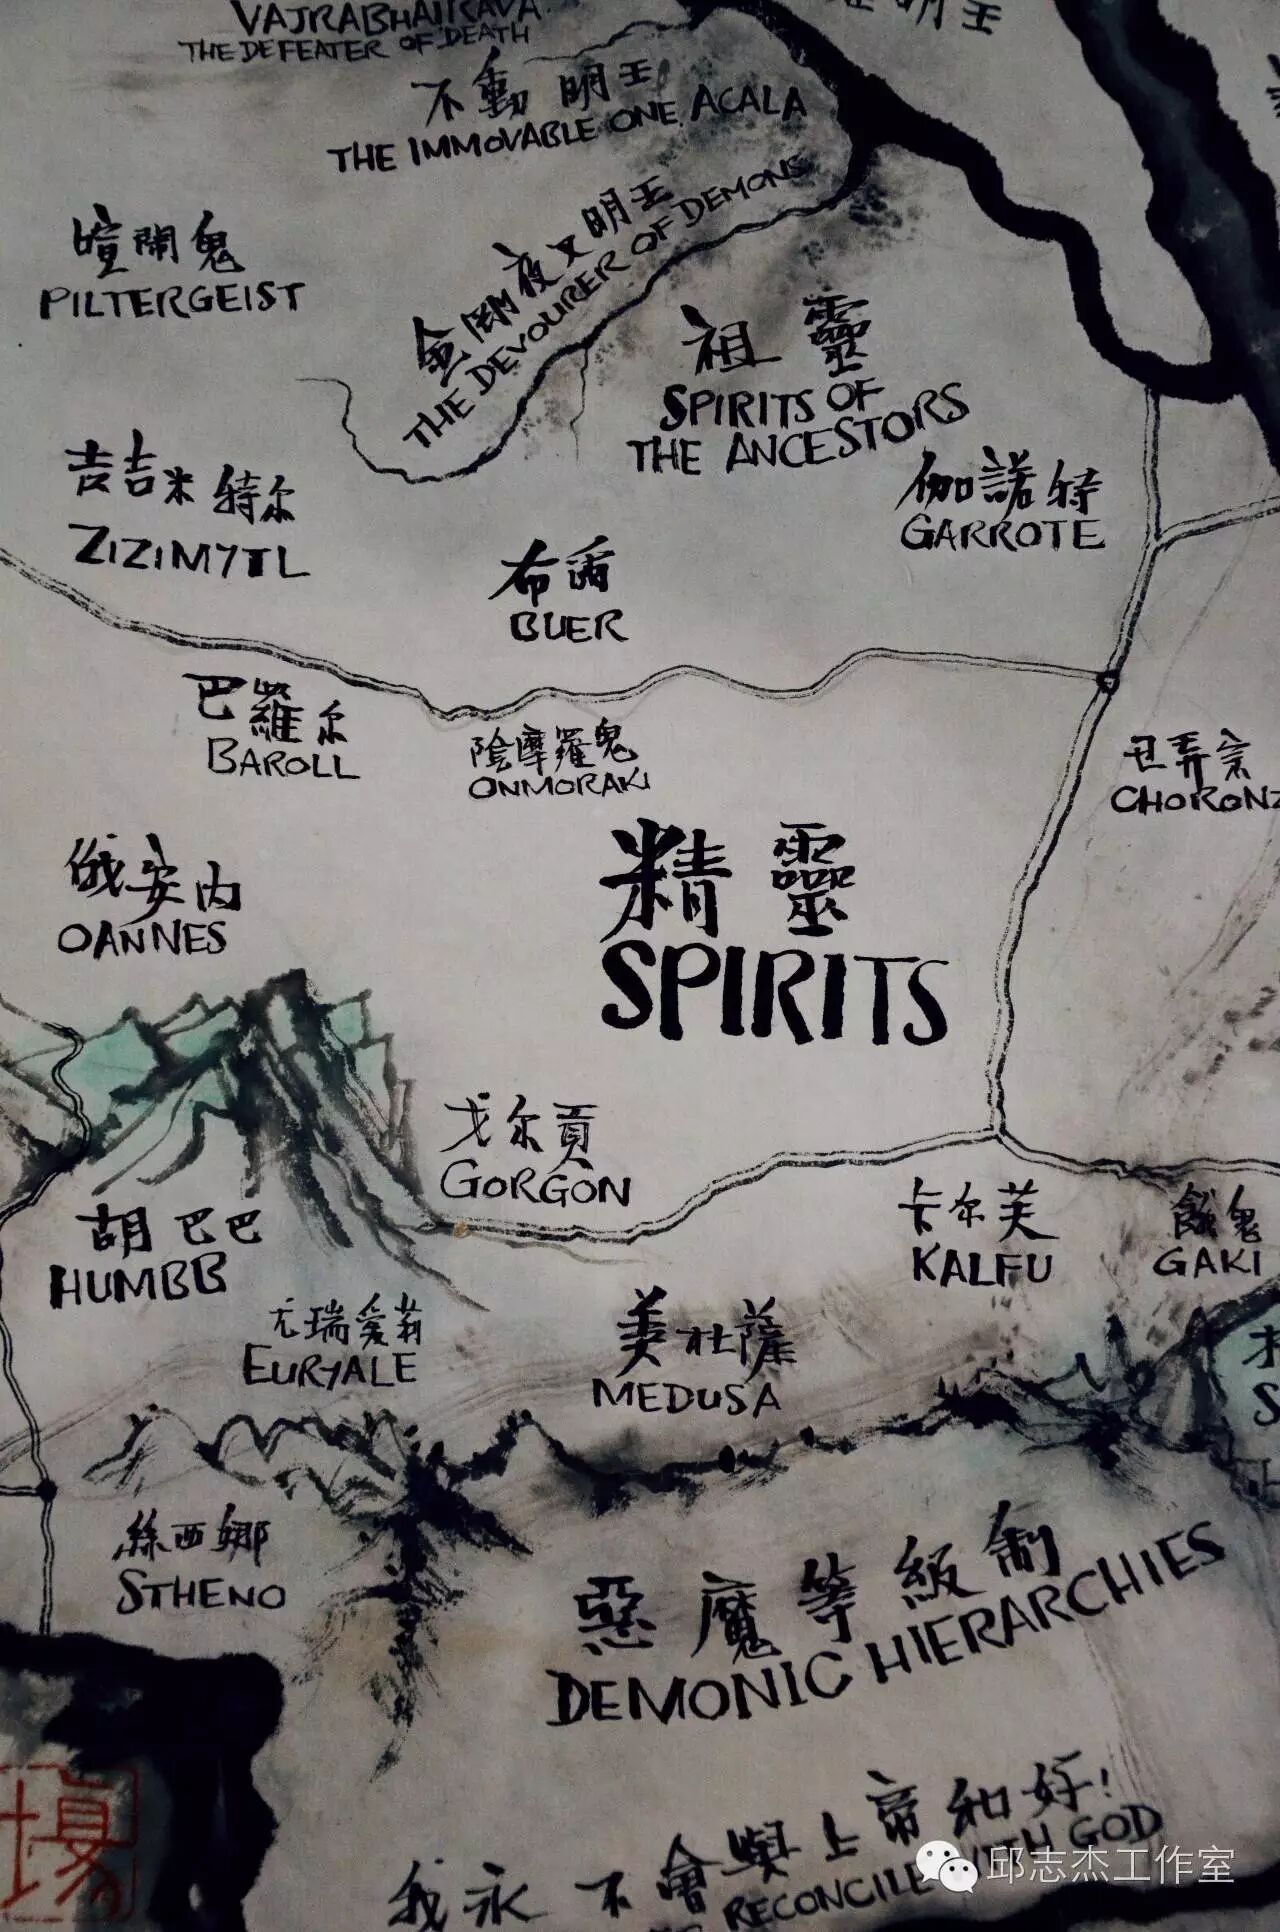 VAJRABHAIRAVA
THE DEFEATER OF DEATH
明王
不動明王
THE IMMOVABLE ONE, ACALA
金剛夜叉明王
THE DEVOURER OF DEMONS
喧鬧鬼
PILTERGEIST
祖靈
SPIRITS OF
THE ANCESTORS
吉吉米特尔
ZIZIMYTL
伽諾特
GARROTE
布爾
BUER
巴羅尔
BAROLL
陰摩羅鬼
ONMORAKI
丑弄
CHORONZ
俄安内
OANNES
精靈
SPIRITS
戈尔貢
GORGON
胡巴巴
HUMBB
卡尔芙
KALFU
餓鬼
GAKI
尤瑞爱莉
EURYALE
美杜薩
MEDUSA
絲西娜
STHENO
惡魔等級制
DEMONIC HIERARCHIES
我永不會與上帝和好!
RECONCILE WITH GOD
邱志杰工作室